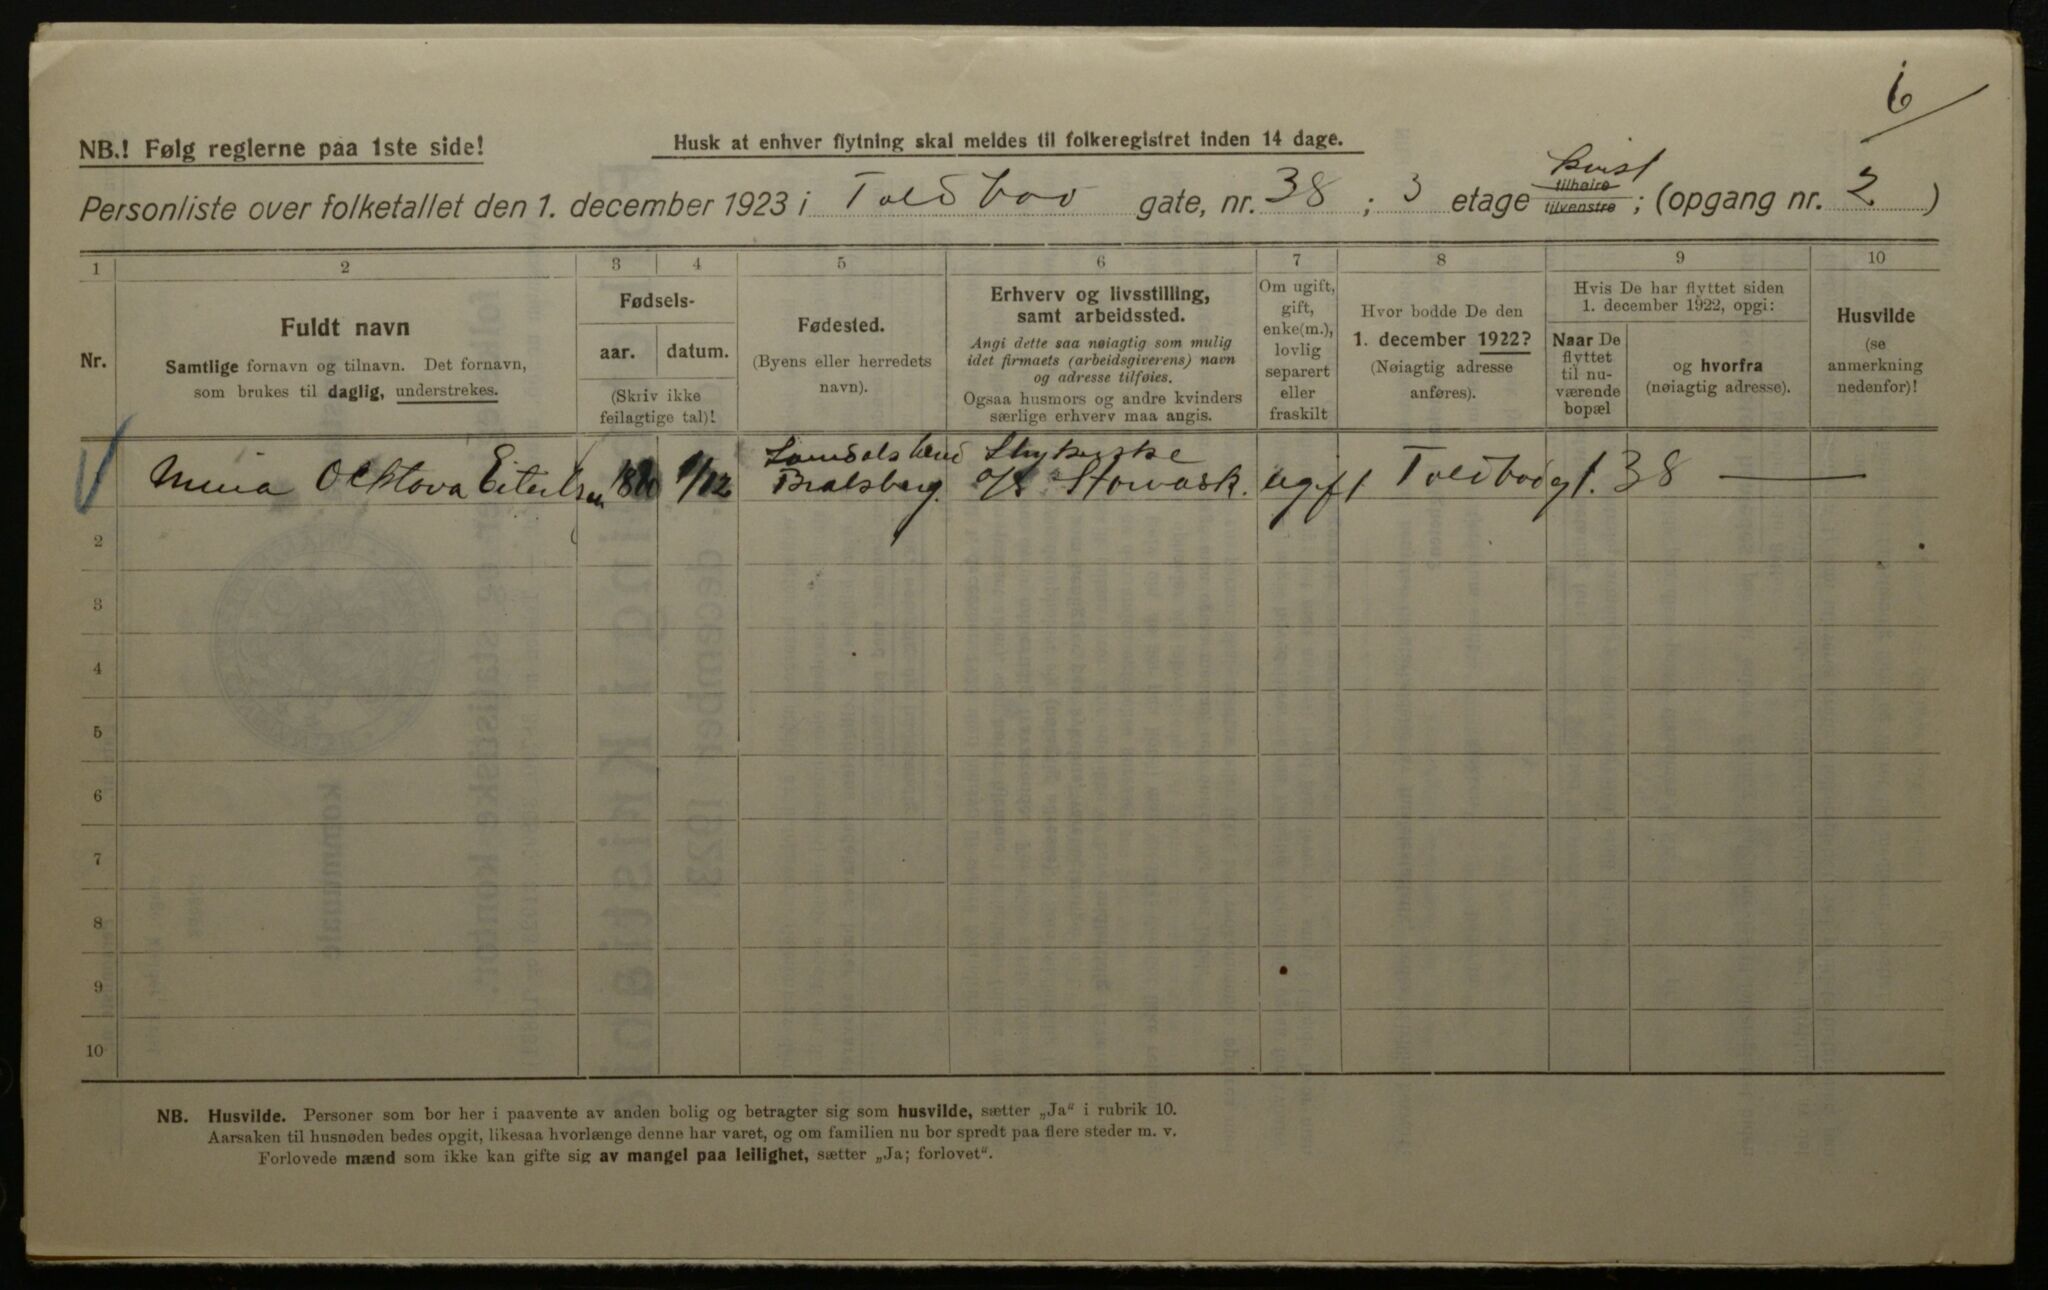 6
NB.! Følg reglerne paa 1ste side!
Husk at enhver flytning skal meldes til folkeregistret inden 14 dage.
Kvist
Personliste over folketallet den 1. december 1923 i Toldbod gate, nr. 38 ; 3 etage tilhøire tilvenstre ; (opgang nr. 2 )
1 2 3 4 5 6 7 8 9 10
Nr.
Fuldt navn
Samtlige fornavn og tilnavn. Det fornavn,
som brukes til daglig, understrekes.
Fødsels-
aar. datum.
(Skriv ikke
feilagtige tal)!
Fødested.
(Byens eller herredets
navn).
Erhverv og livsstilling,
samt arbeidssted.
Angi dette saa nøiagtig som mulig
idet firmaets (arbeidsgiverens) navn
og adresse tilføies.
Ogsaa husmors og andre kvinders
særlige erhverv maa angis.
Om ugift,
gift,
enke(m.),
lovlig
separert
eller
fraskilt
Hvor bodde De den
1. december 1922?
(Nøiagtig adresse
anføres).
Hvis De har flyttet siden
1. december 1922, opgi:
Naar De
flyttet
til nu-
værende
bopæl
og hvorfra
(nøiagtig adresse).
Husvilde
(se
anmerkning
nedenfor)!
Oktova ugift Toldbodgt. 38 —
2
3
4
5
6
7
8
9
10
NB. Husvilde. Personer som bor her i paavente av anden bolig og betragter sig som husvilde, sætter „Ja“ i rubrik 10.
Aarsaken til husnøden bedes opgit, likesaa hvorlænge denne har varet, og om familien nu bor spredt paa flere steder m. v.
Forlovede mænd som ikke kan gifte sig av mangel paa leilighet, sætter „Ja; forlovet“.